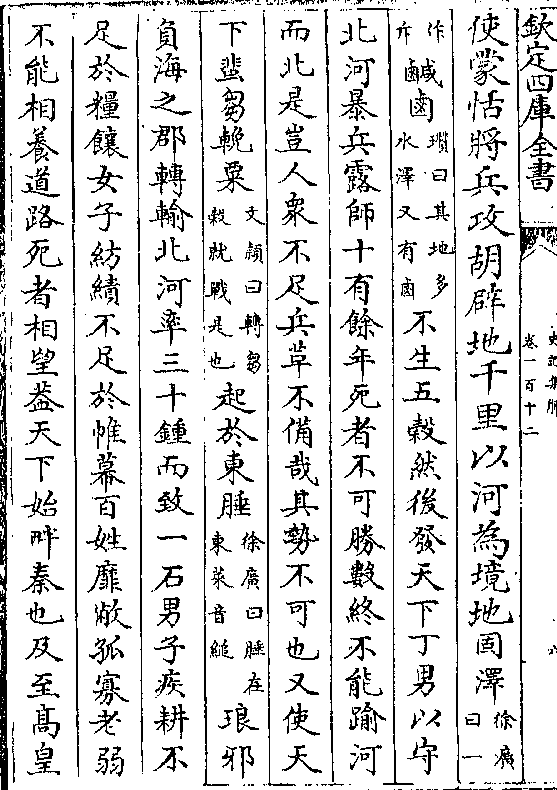 欽定四庫全書
史記集解
卷一百十二
使蒙恬將兵攻胡辟地千里以河為境地固澤徐廣曰一
作鹹斥鹵瓚曰其地多水澤又有鹵不生五穀然後發天下丁男以守
北河暴兵露師十有餘年死者不可勝數終不能踰河
而北是豈人衆不足兵革不備哉其勢不可也又使天
下蜚芻輓粟文頴曰轉芻穀就戰是也起於東腄徐廣曰腄在東萊音縋琅邪
負海之郡轉輸北河率三十鍾而致一石男子疾耕不
足於糧饟女子紡績不足於帷幕百姓靡敝孤寡老弱
不能相養道路死者相望葢天下始畔秦也及至髙皇